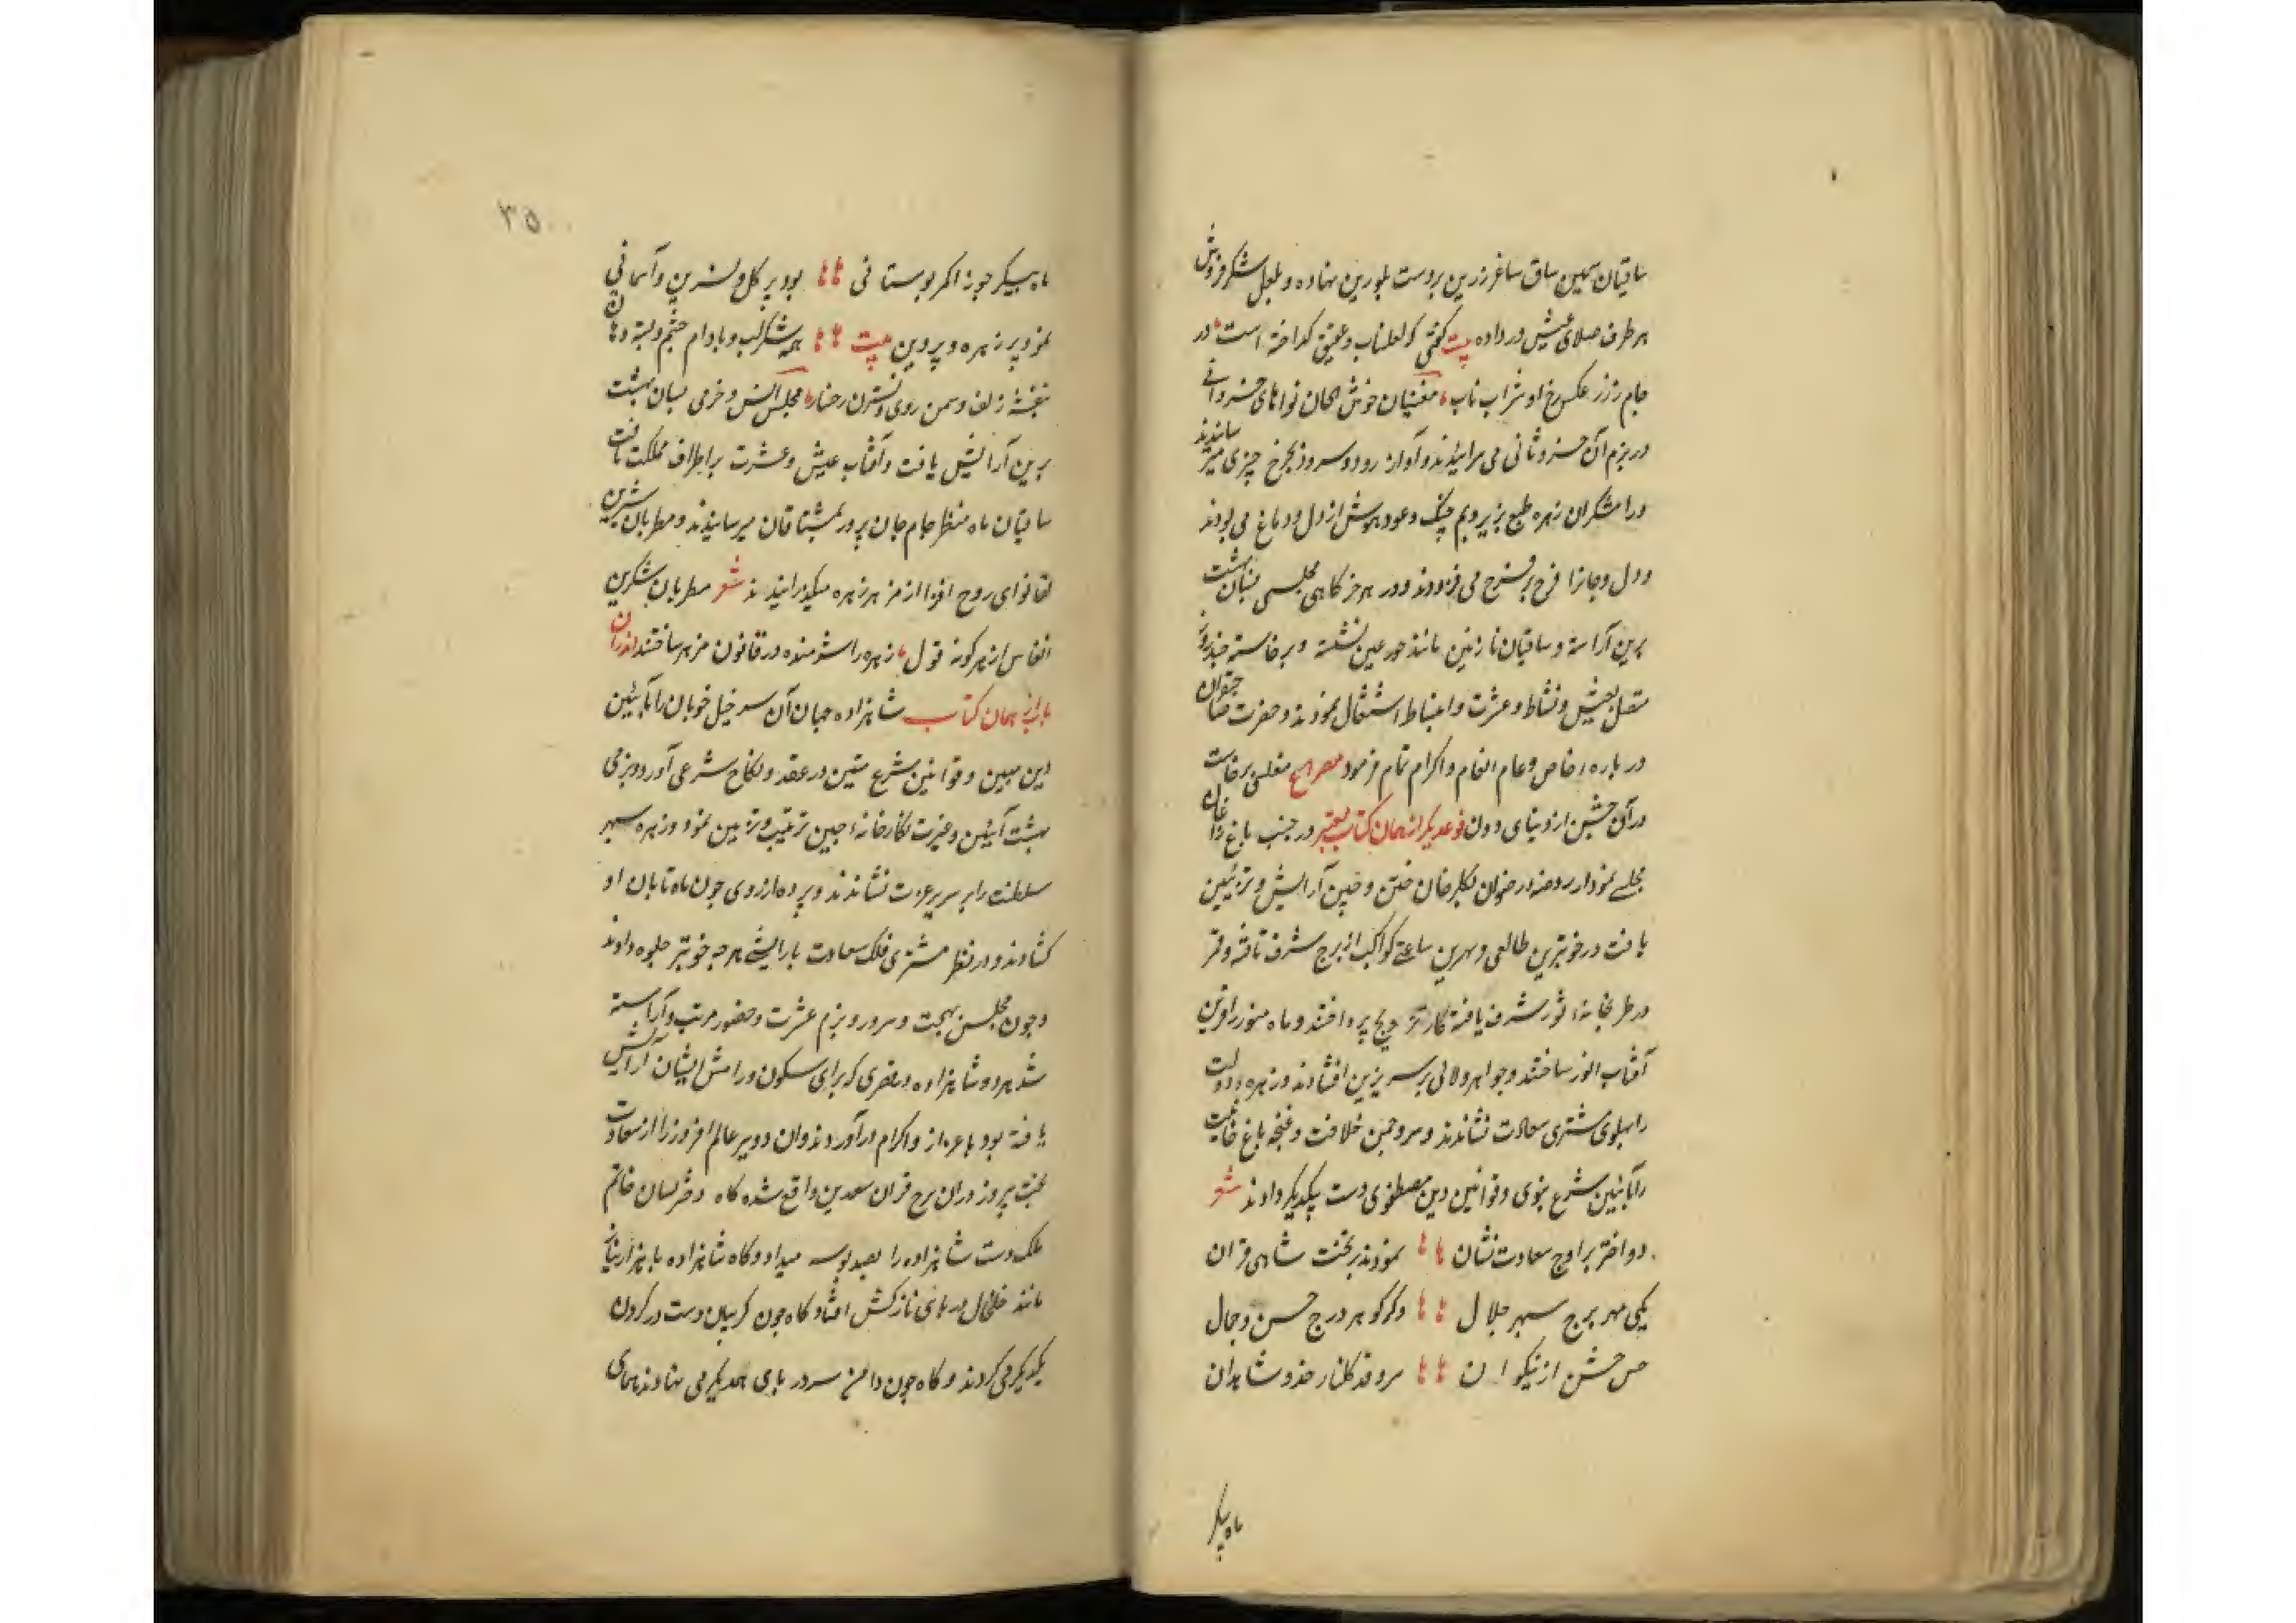 ساقیان سیمین ساق ساغر زرین بر دست بلورین نهاده و بلعل شکر فروش
هر طرف صلای عیش در داده بیت گفتی که لعل ناب و عقیق گداخته است در
جام زر ز عکس رخ او شراب ناب مغنیان خوش الحان نواهای خسروانی
در بزم آن خسرو ثانی می سرائیدند و آواز رود و سرود بچرخ چنبری میرسانیدند
ورامشکران زهره طبع بزیر و بم چنک و عود هوش از دل و دماغ می ربودند
و دل و جانرا فرح بر فرح می فزودند و در هر خرکاهی مجلسی بسان بهشت
برین آراسته و ساقیان نازنین مانند حور عین نشسته و برخاسته
متصل بعیش و نشاط و عشرت و انبساط اشتغال نمودند و حضرت صاحبقران
در باره خاص و عام انعام و اکرام تمام فرمود مصراع مفلسی برخاست
در آن جشن از دنیای دون نوعدیکر از همان کتاب معتبر در جنب باغ زاغان
مجلسی نمودار روضه رضوان بکلرخان ختن و چین آرایش و تزئین
یافت در خوبترین طالعی و بهترین ساعتی کواکب از برج شرف تافته و قمر
در طربخانه ثور شرف یافته کار تزویج پرداختند و ماه منور را قرین
آفتاب انور ساختند و جواهر و لالی بر سریر زرین افشاندند و زهره دولت
را پهلوی مشتری سعادت نشاندند و سرو چمن خلافت و غنچه باغ
را بآئین شرع نبوی و قوانین دین مصطفوی دست بیکدیکر دادند شعر
دو اختر بر اوج سعادت نشان نمودند بر تخت شاهی قران
یکی مهر برج سپهر جلال دکر کوهر درج حسن و جمال
جشن از نیکوان سرو قد کلنار خد و شاهدان
ماه پیکر
۳۵۰
ماه پیکر جوزا کمر بوستانی بود پر کل و نسرین و آسمانی
نمود پر زهره و پروین بیت همه شکر لب و بادام چشم و پسته دهان
بنفشه زلف و سمن روی و نسترن رخسار مجلس انس و خرمی بسان بهشت
برین آرایش یافت و آفتاب عیش و عشرت بر اطراف مملکت تافت
ساقیان ماه منظر جام جان پرور بمشتاقان میرسانیدند و مطربان شیرین
لقا نوای روح افزا از مزهر زهره میکذرانیدند شعر مطربان شکرین
انفاس از هر کونه قول زهره را شرمنده در قانون مزهر ساختند اندران
باب از همان کتاب شاهزاده جهان آن سر خیل خوبان را بآئین
دین مبین و قوانین شرع متین در عقد و نکاح شرعی آورد و بزمی
بهشت آئین و غیرت نکارخانه چین ترتیب و تزیین نمود و زهره سپهر
سلطنت را بر سریر عزت نشاندند و پرده از روی چون ماه تابان او
کشادند و در نظر مشتری فلک سعادت بارایشی هر چه خوبتر جلوه دادند
و چون مجلس بهجت و سرور و بزم عشرت و حضور مرتب و آراسته
شد هر دو شاهزاده در قصری که برای سکون و رامش ایشان آرایش
یافته بود باعزاز و اکرام در آوردند و ان دو پیر عالم افروز را از سعادت
بخت پیروز در ان برج قران سعدین واقع شده کاه دختر بسان خاتم
ملک دست شاهزاده را بصد بوسه میداد و کاه شاهزاده با هزار نیاز
مانند خلخال در پای نازکش افتاد و کاه چون کریبان دست در کردن
یکدیکر می کردند و کاه چون دامن سر در پای همدیکر می نهادند همای